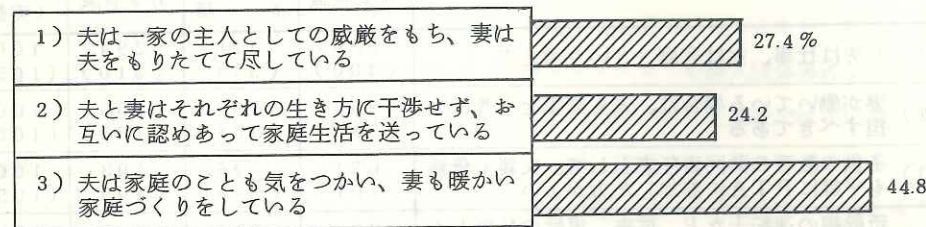 1）夫は一家の主人としての威厳をもち、妻は
夫をもりたてて尽している
27.4％
2）夫と妻はそれぞれの生き方に干渉せず、お
互いに認めあって家庭生活を送っている
24.2
3）夫は家庭のことも気をつかい、妻も暖かい
家庭づくりをしている
44.8